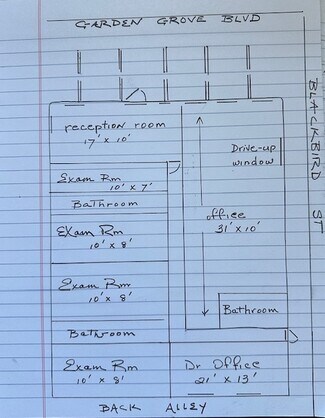 GARDEN GROVE BLVD
BLACKBIRD ST
reception room
17' x 10'
Drive-up
window
Exam Rm
10' x 7'
Bathroom
Exam Rm
10' x 8'
office
31' x 10'
Exam Rm
10' x 8'
Bathroom
Bathroom
Exam Rm
10' x 8'
Dr Office
21' x 13'
BACK ALLEY